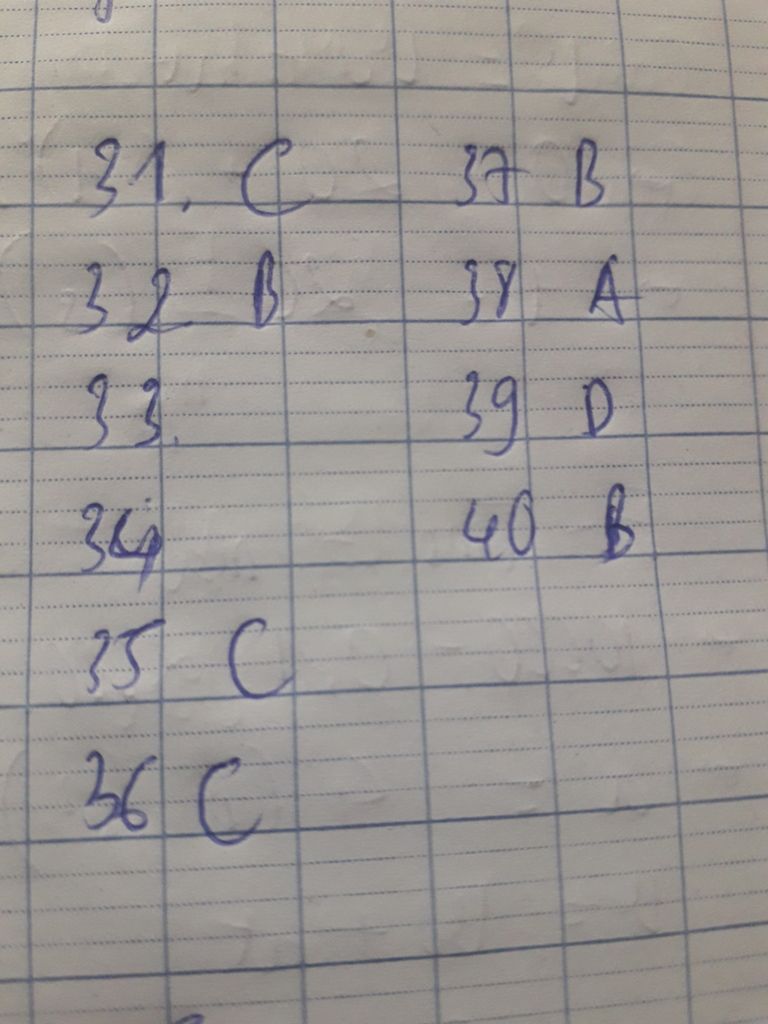 31. C
32 B
33.
34
35 C
36 C
37 B
38 A
39 D
40 B